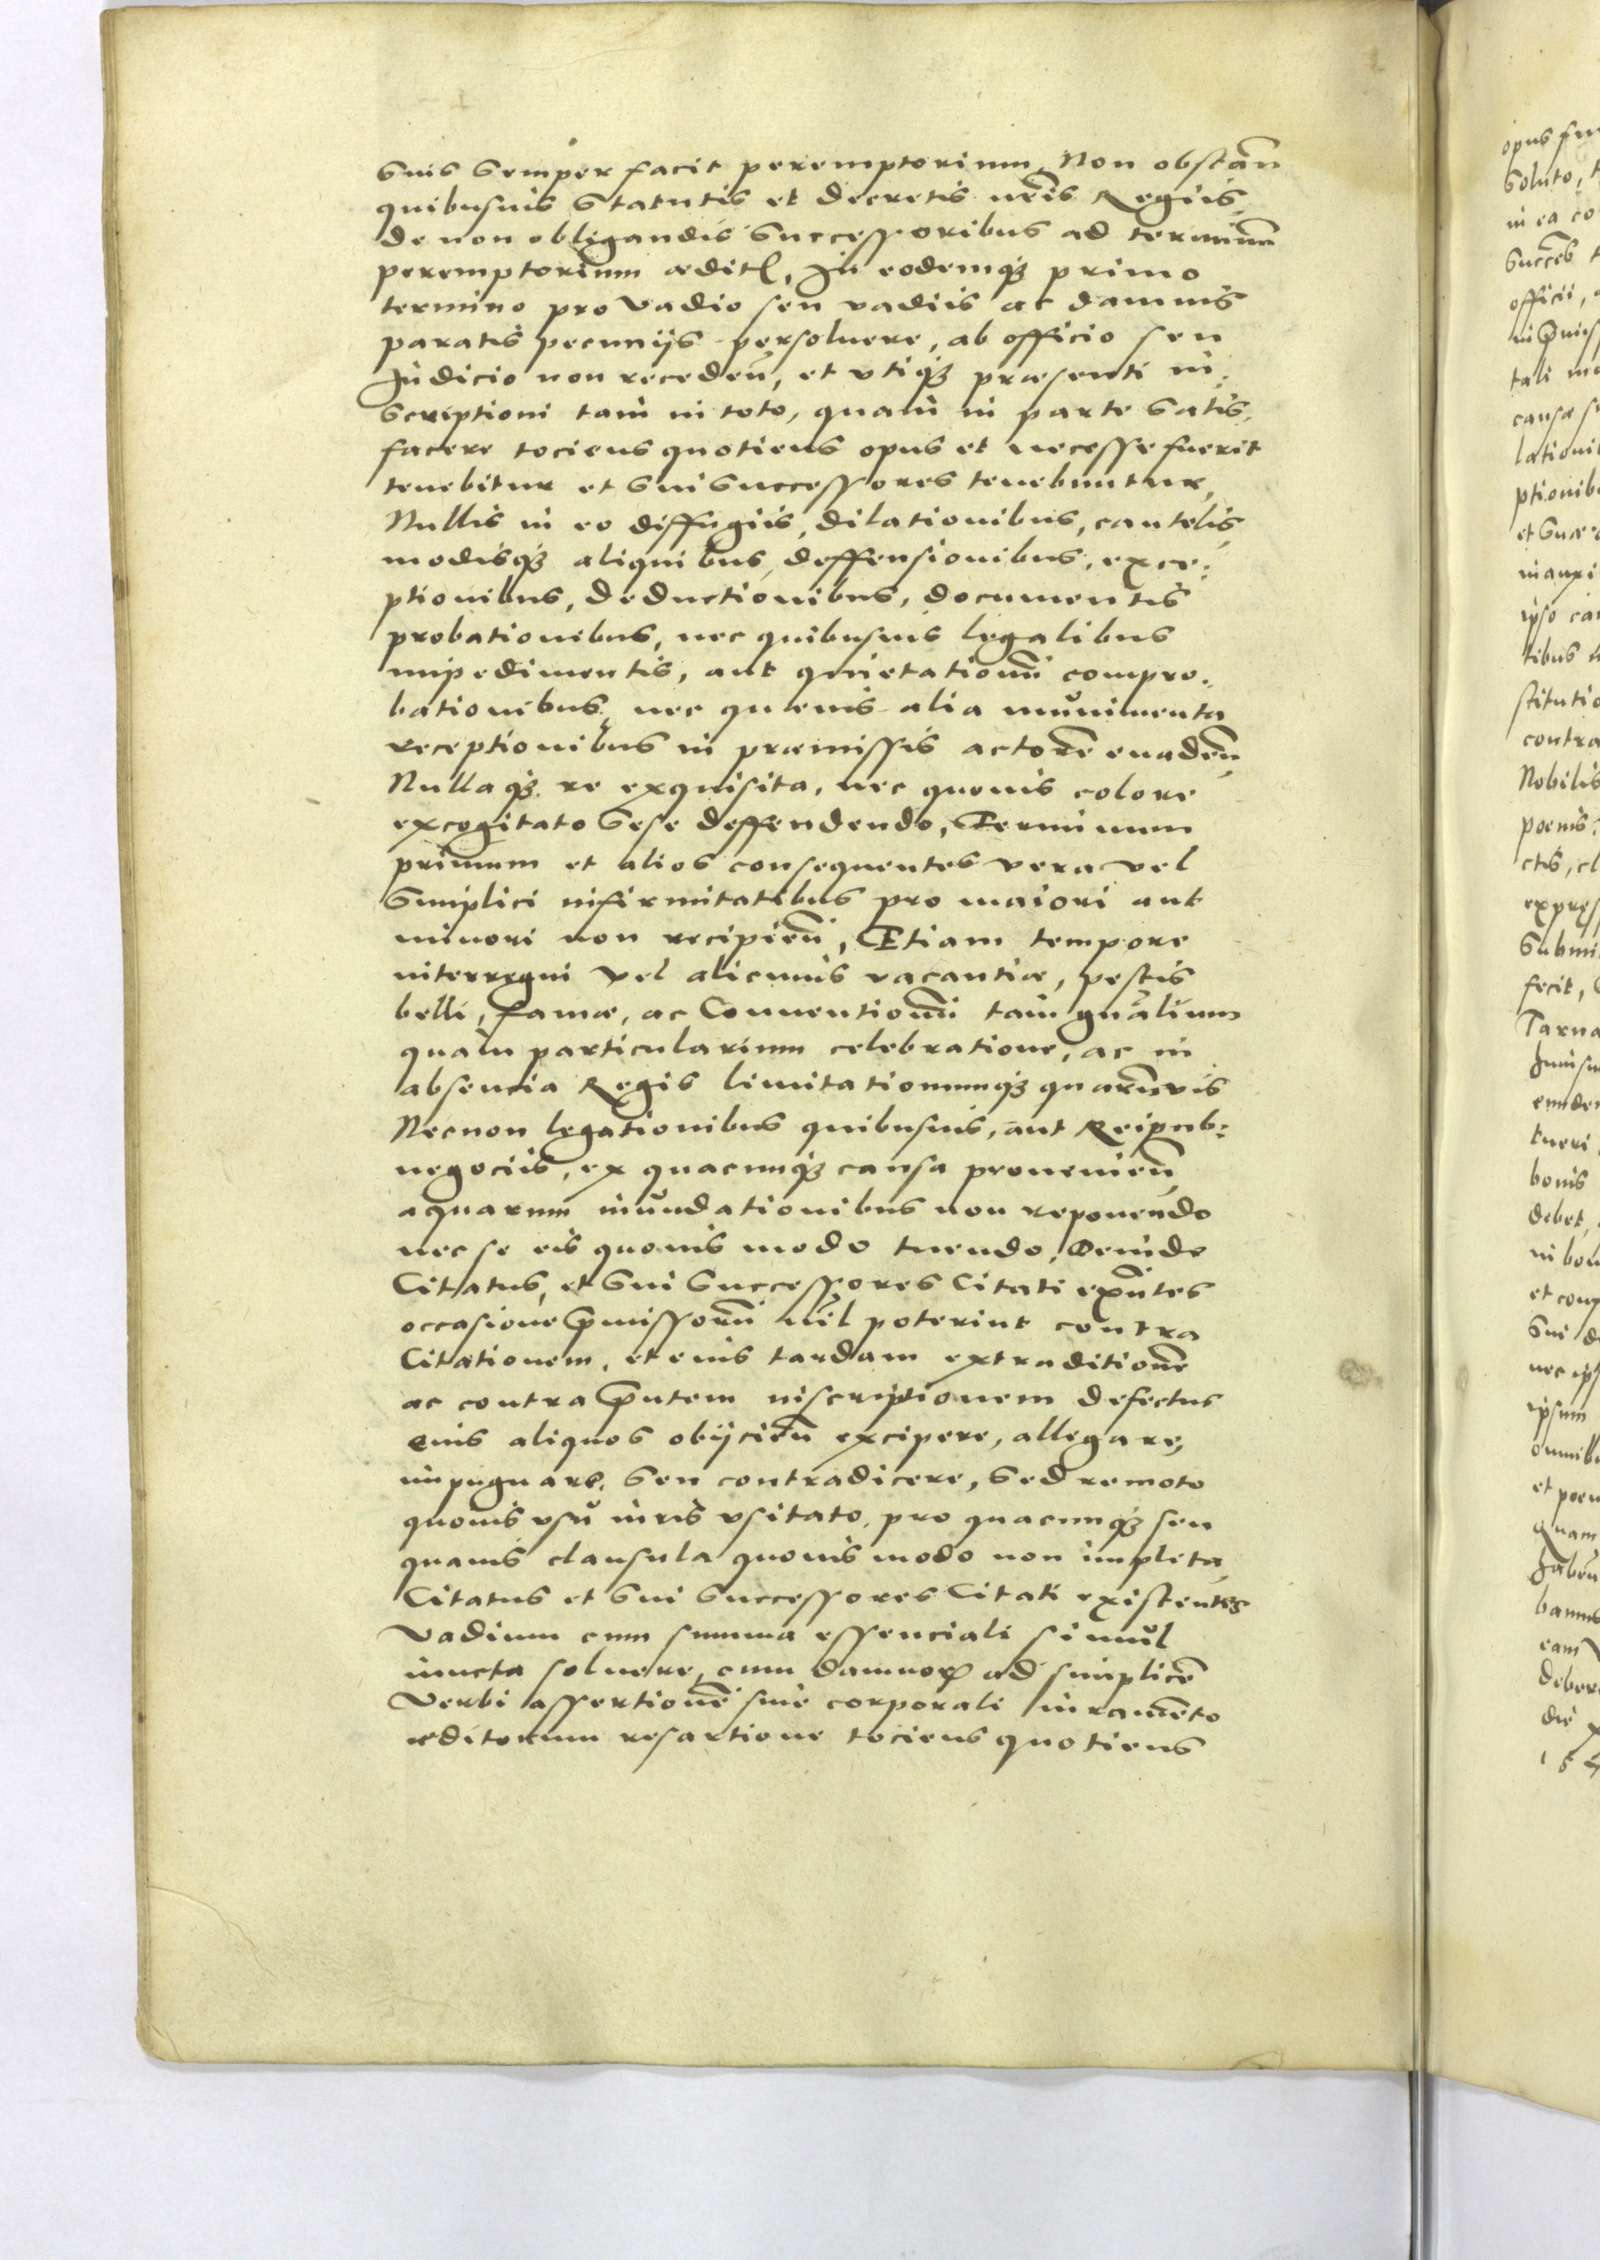 suis semper facit peremptorium, Non obstan̄
quibusuis Statutis et decretis nr̄is Regiis
de non obligandis Successoribus ad terminū
peremptorium ædit, In eodemq3 primo
termino pro vadio seu vadiis ac damnis
paratis pecunijs persoluere, ab officio seu
Judicio non recedeñ, et vtiq3 præsenti in:
scriptioni tam in toto, quam in parte satis
facere tociens quotiens opus et necesse fuerit
tenebitur et sui Successores tenebuntur,
Nullis in eo diffugiis, dilationibus, cautelis
modisq3 aliquibus, deffensionibus, exce:
ptionibus, deductionibus, documentis
probationibus, nec quibusuis legalibus
impedimentis, aut quietationū compro:
bationibus, nec quæuis alia munimenta
receptionibus in præmissis actorē euadeñ,
Nullaq3 re exquisita, nec quouis colore
excogitato sese deffendendo, Terminum
primum et alios consequentes vera vel
simplici infirmitatibus pro maiori aut
minori non recipieñ, Etiam tempore
interregni vel alicuius vacantiæ, pestis
belli, famæ, ac Conuentionū tam gn̄alium
quam particularium celebratione, ac in
absencia Regis limitationumq3 quarūvis
Necnon legationibus quibusuis, aut Reipub:
negociis, ex quacumq3 causa prouenieñ,
aquarum inundationibus non reponendo
nec se eis quouis modo tuendo, Deinde
Citatus, et sui Successores Citati exn̄tes
occasione p̄missorū nil poterint contra
Citationem, et eius tardam extraditionē
ac contra p̄ntem inscriptionem defectus
eius aliquos obijcieñ excipere, allegare,
impugnare, seu contradicere, sed remoto
quouis vsu iuris vsitato, pro quacumq3 seu
quauis clausula quouis modo non impleta
Citatus et sui Successores Citati existentes
Vadium cum summa essenciali simul
iuncta soluere, cum damnoꝝ ad simplicē
Verbi assertionē sine corporali iuramēto
æditorum resartione tociens quotiens